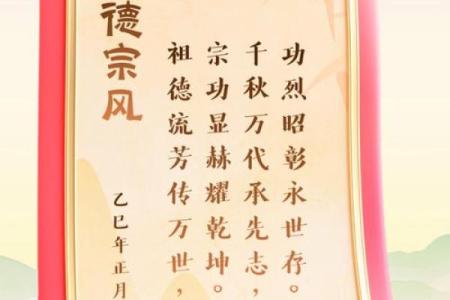 德宗风
祖德流芳传万世，
宗功显赫耀乾坤。
千秋万代承先志，
功烈昭彰永世存。
乙巳年正月